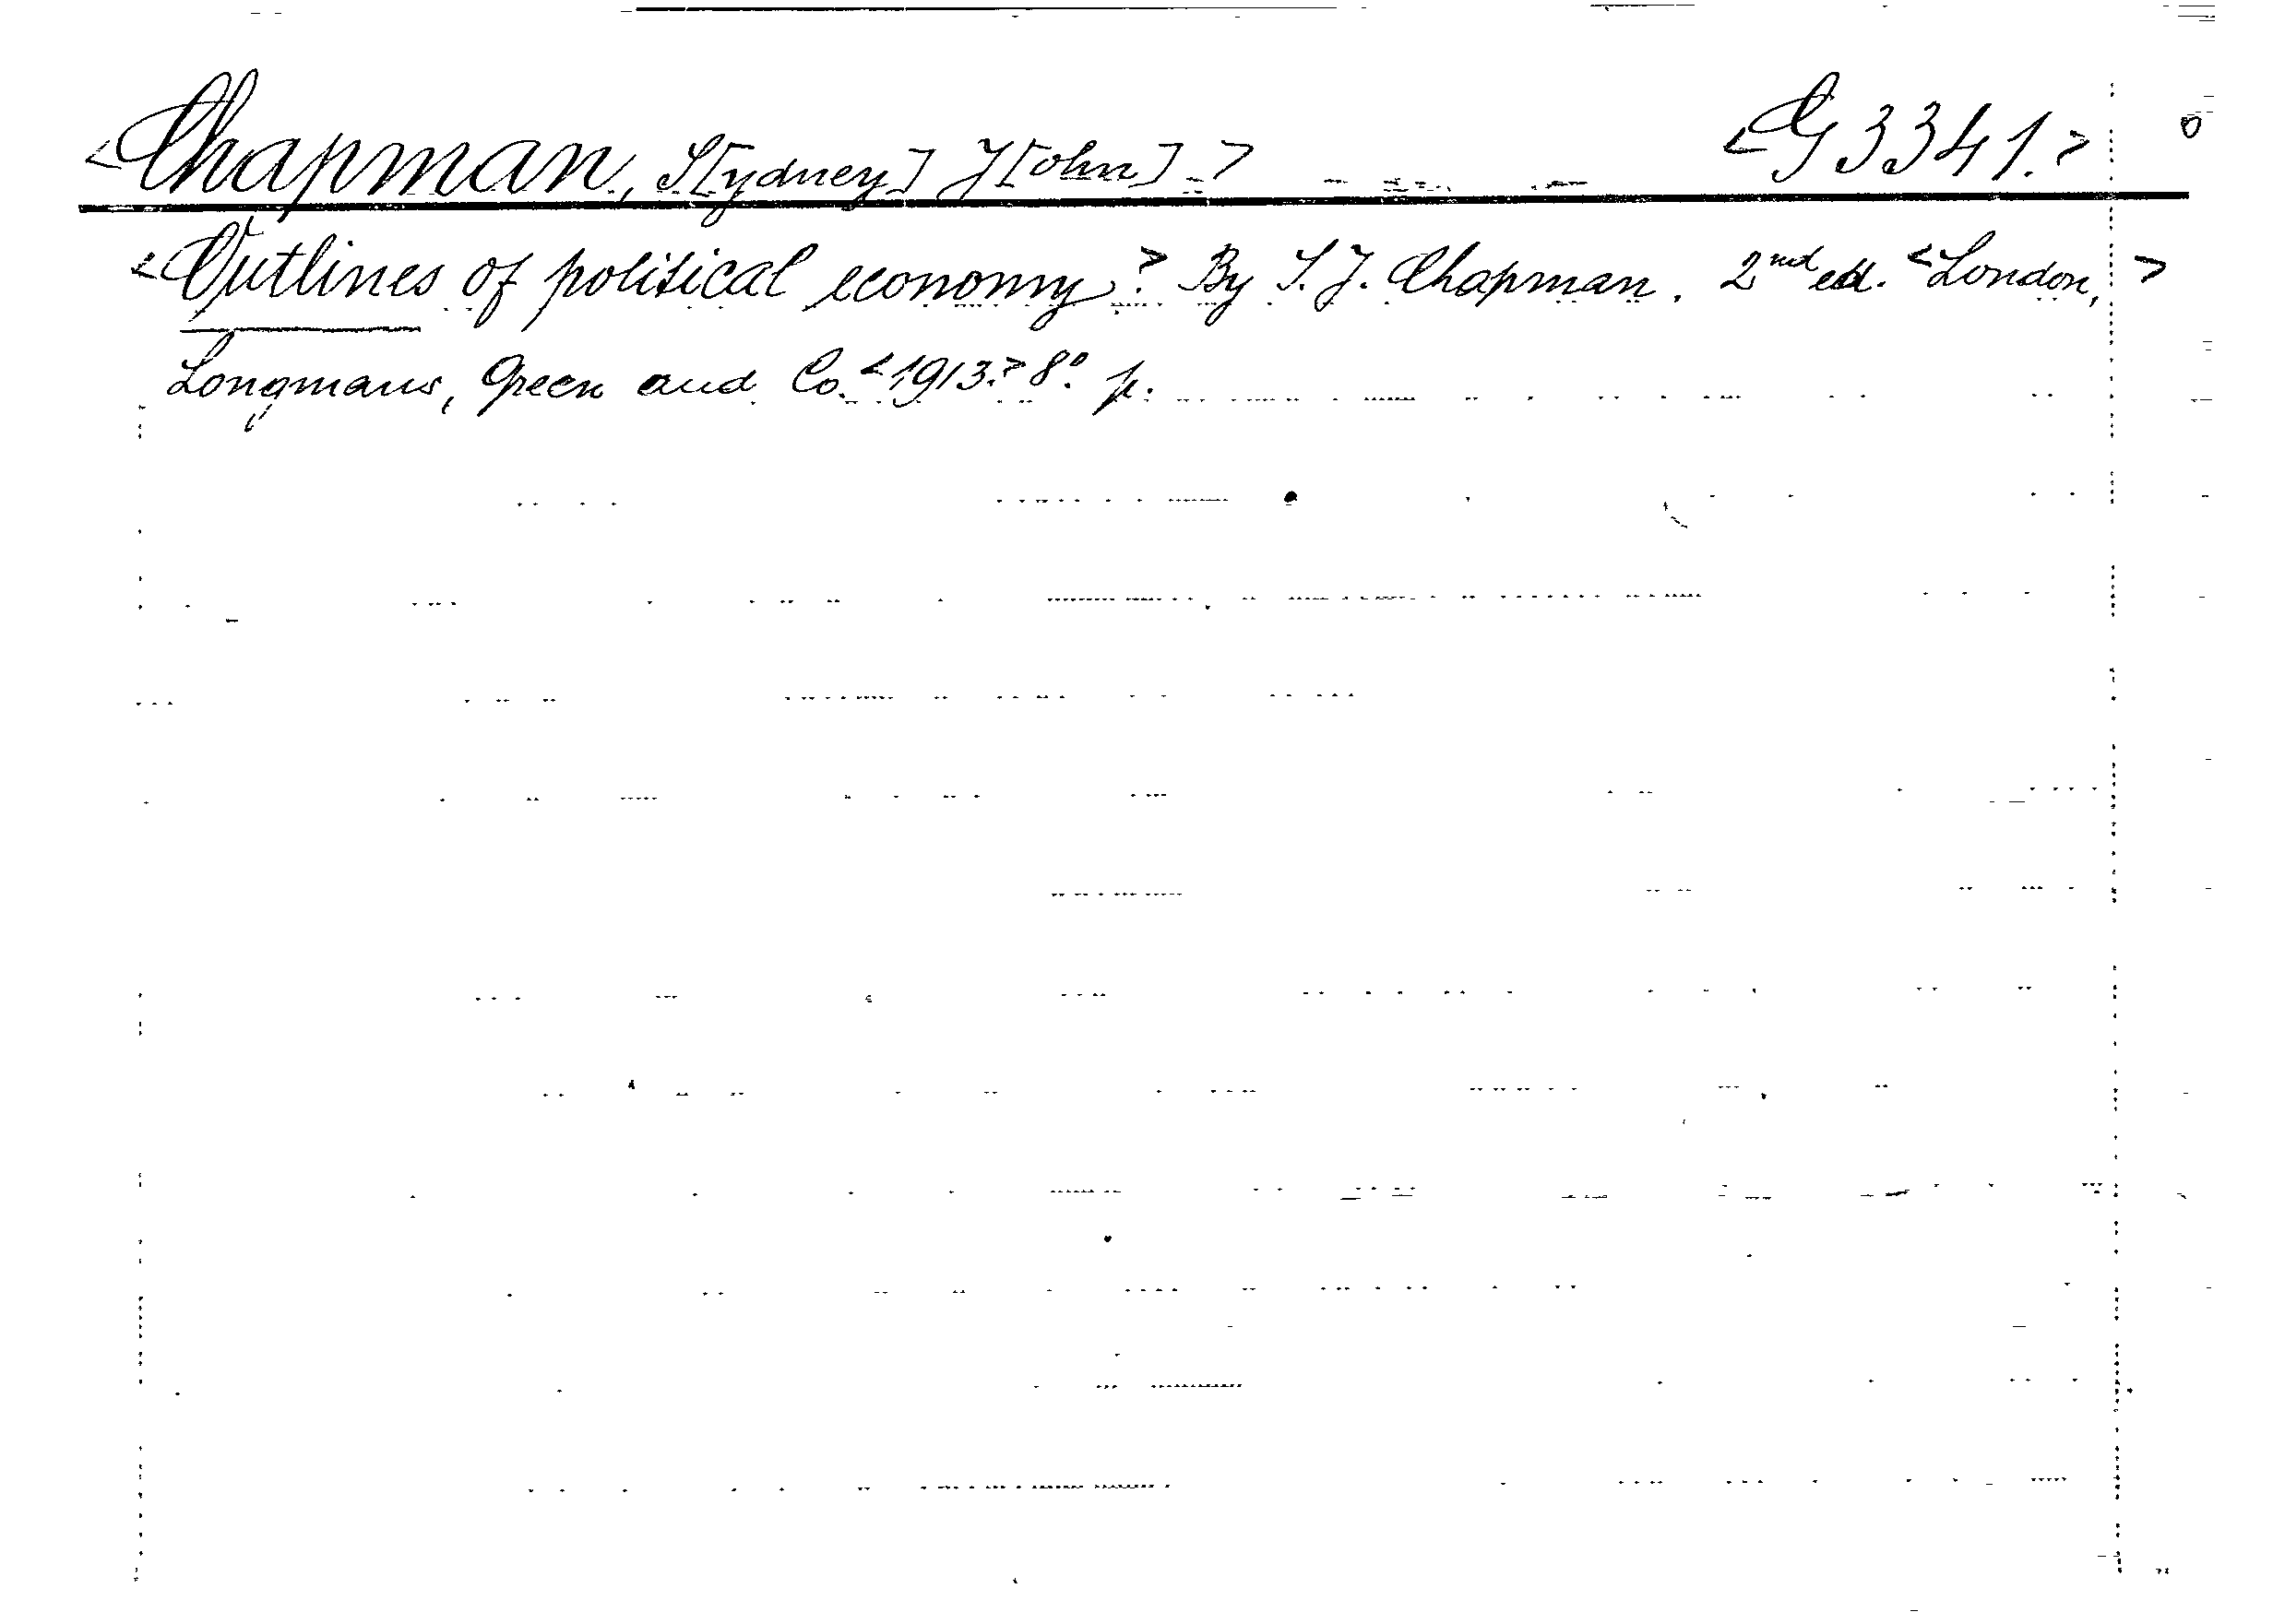 <Chapman, S[ydney] J[ohn].> <G 3341.>
<Outlines of political economy.> By S. J. Chapman. 2nd ed. <London,>
Longmans, Green and Co. <1913.> 8°. p.